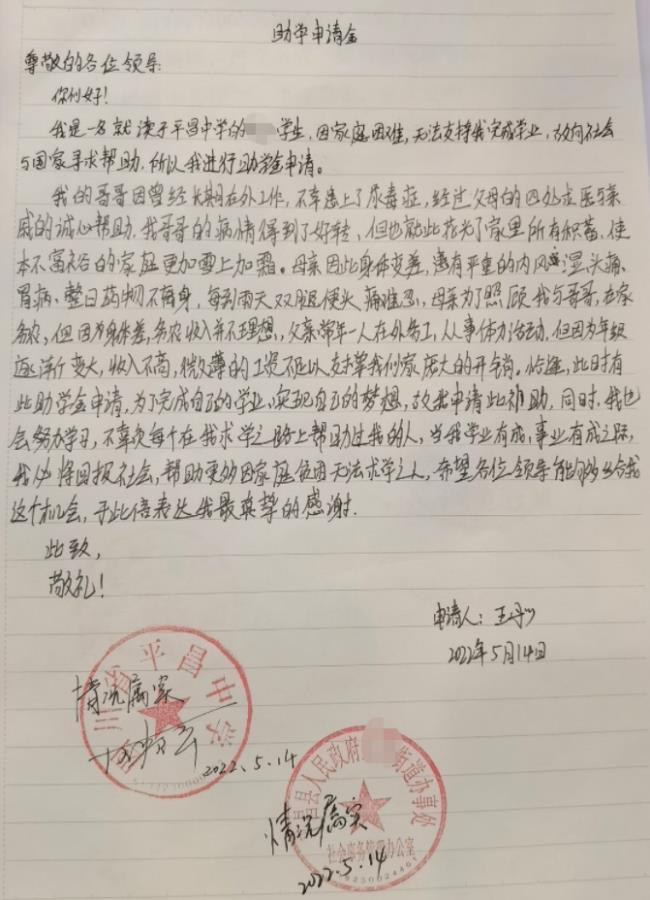 助学申请金
尊敬的各位领导:
你们好!
我是一名就读于平昌中学的 学生,因家庭困难,无法支持我完成学业,故向社会
与国家寻求帮助,所以我进行助学金申请。
我的哥哥因曾经长期在外工作,不幸患上了尿毒症,经过父母的四处求医与亲
戚的诚心帮助,我哥哥的病情得到了好转、但也就此花光了家里所有积蓄,使
本不富裕的家庭更加雪上加霜。母亲因此身体变差,患有严重的内风湿、头痛、
胃病、整日药物不离身,每到雨天双腿便头痛难忍,母亲为了照顾我与哥哥,在家
务农,但因为身体差,务农收入并不理想,父亲常年一人在外务工,从事体力活动,但因为年纪
逐渐变大,收入不高,微薄的工资不足以支撑我们家庞大的开销。恰逢,此时有
此助学金申请,为了完成自己的学业,实现自己的梦想,故我申请此补助,同时,我也
会努力学习,不辜负每个在我求学之路上帮助过我的人,当我学业有成,事业有成之际,
我必将回报社会,帮助更多因家庭贫困无法求学之人,希望各位领导能够给我
这个机会,于此信表达我最真挚的感谢.
此致,
敬礼!
申请人:王
2022年5月14日
省平昌中学
情况属实
2022.5.14
昌县人民政府 街道办事处
情况属实
社会事务管理办公室
2022.5.14